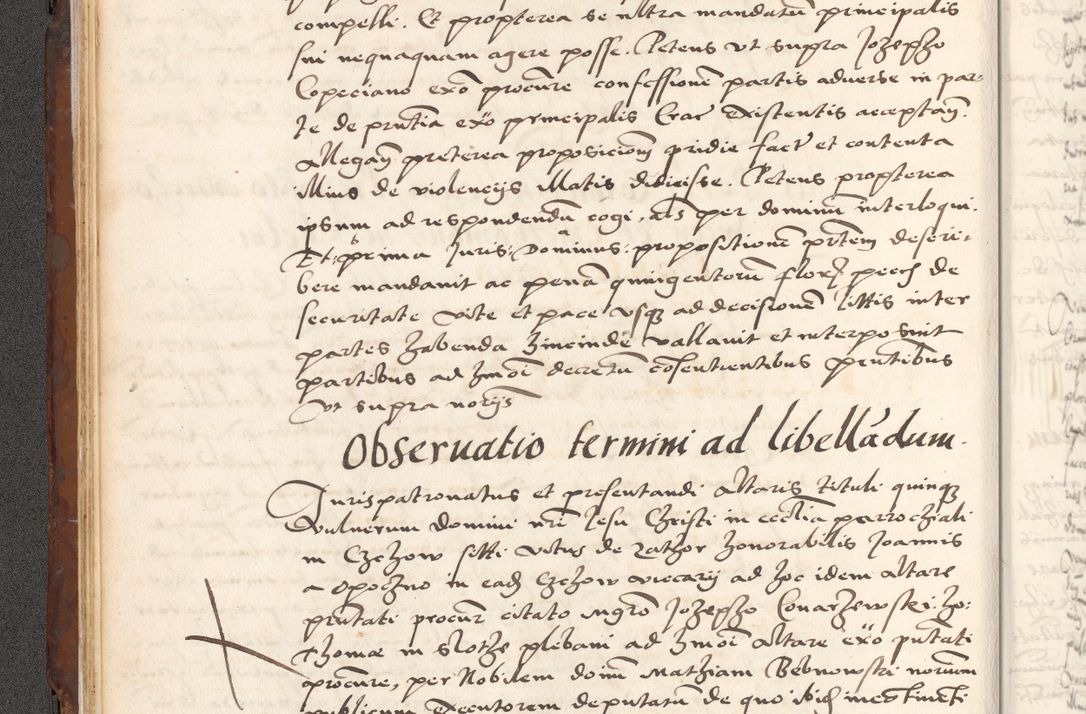 compelli. Et propterea se ultra mandatum principalis
sui nequaquam agere posse. Petens ut supra Jozepho
Copeciano exo procure confessionem partis adverse in par-
te de pntia exo principalis Crac existentis acceptam.
Allegam preterea proposiciom pridie fact et contenta
illius de violencijs illatis didicisse. Petens propterea
ipsum ad respondendum cogi, als per dominum interloqui.
Et prima Juris: Dominus: propositionem prtem descri-
bere mandavit ac penam quingentorum flor pecch de
securitate vite et pace usq ad decisionem littis inter
partes habenda hincinde vallavit et interposuit
partibus ad hmoi decretum consentientibus pntibus
ut supra norijs
Observatio termini ad libelladum.
Jurispatronatus et presentandi altaris tituli quinq
vulnerum domini nri Jesu Christi in ecclia parrochiali
in Czchow sitti vitus de Lathor honorabilis Joannis
a Opoczno in ead Czchow vicarij ad hoc idem altare
pntati procur citato mgro Jozepho Conarzewski: ho:
Thomae in Slothe plebani ad hmoi altare exo pntati
procure, per Nobilem domi Mathiam Bebnowski norium
publicum Executorem deputatum de quo ibid mectineti